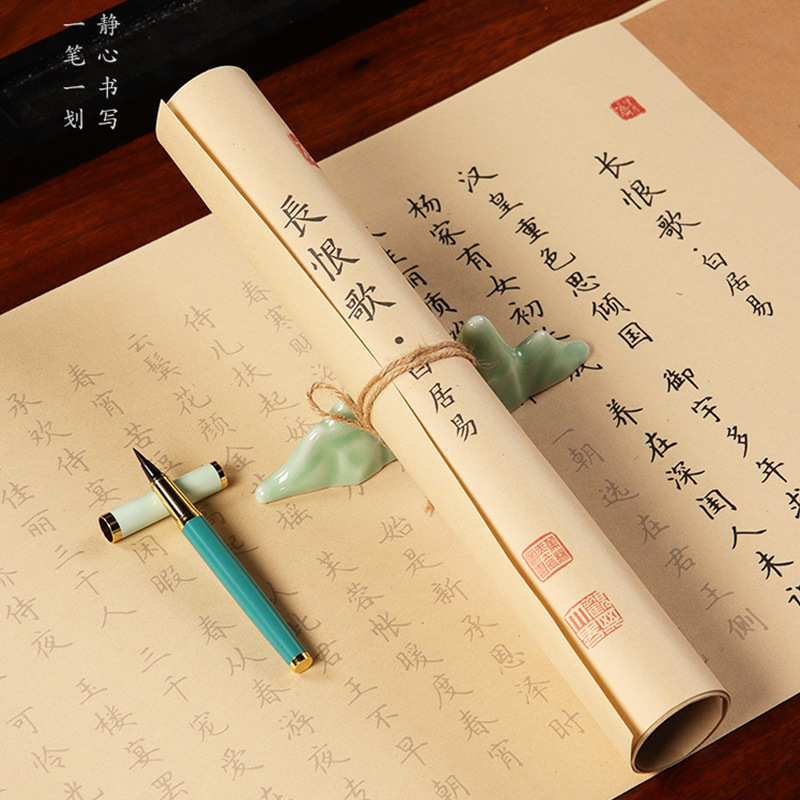 静心书写
一笔一划
長恨歌·白居易
长恨歌·白居易
汉皇重色思倾国 御宇多年求
杨家有女初长成 养在深闺人未
生丽质 一朝选在君王侧
春寒赐
侍儿扶起娇 始是新承恩泽时
云鬓花颜金 摇 芙蓉帐暖度春宵
春宵苦 君王不早朝
承欢侍宴 闲暇 春从春游夜专
佳丽三千人 三千宠爱
侍夜 玉楼宴罢
可怜光